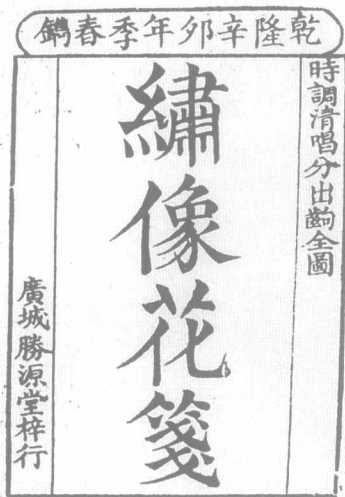 乾隆辛卯年季春鐫
時調清唱分出齣全圖
繡像花箋
廣城勝源堂梓行